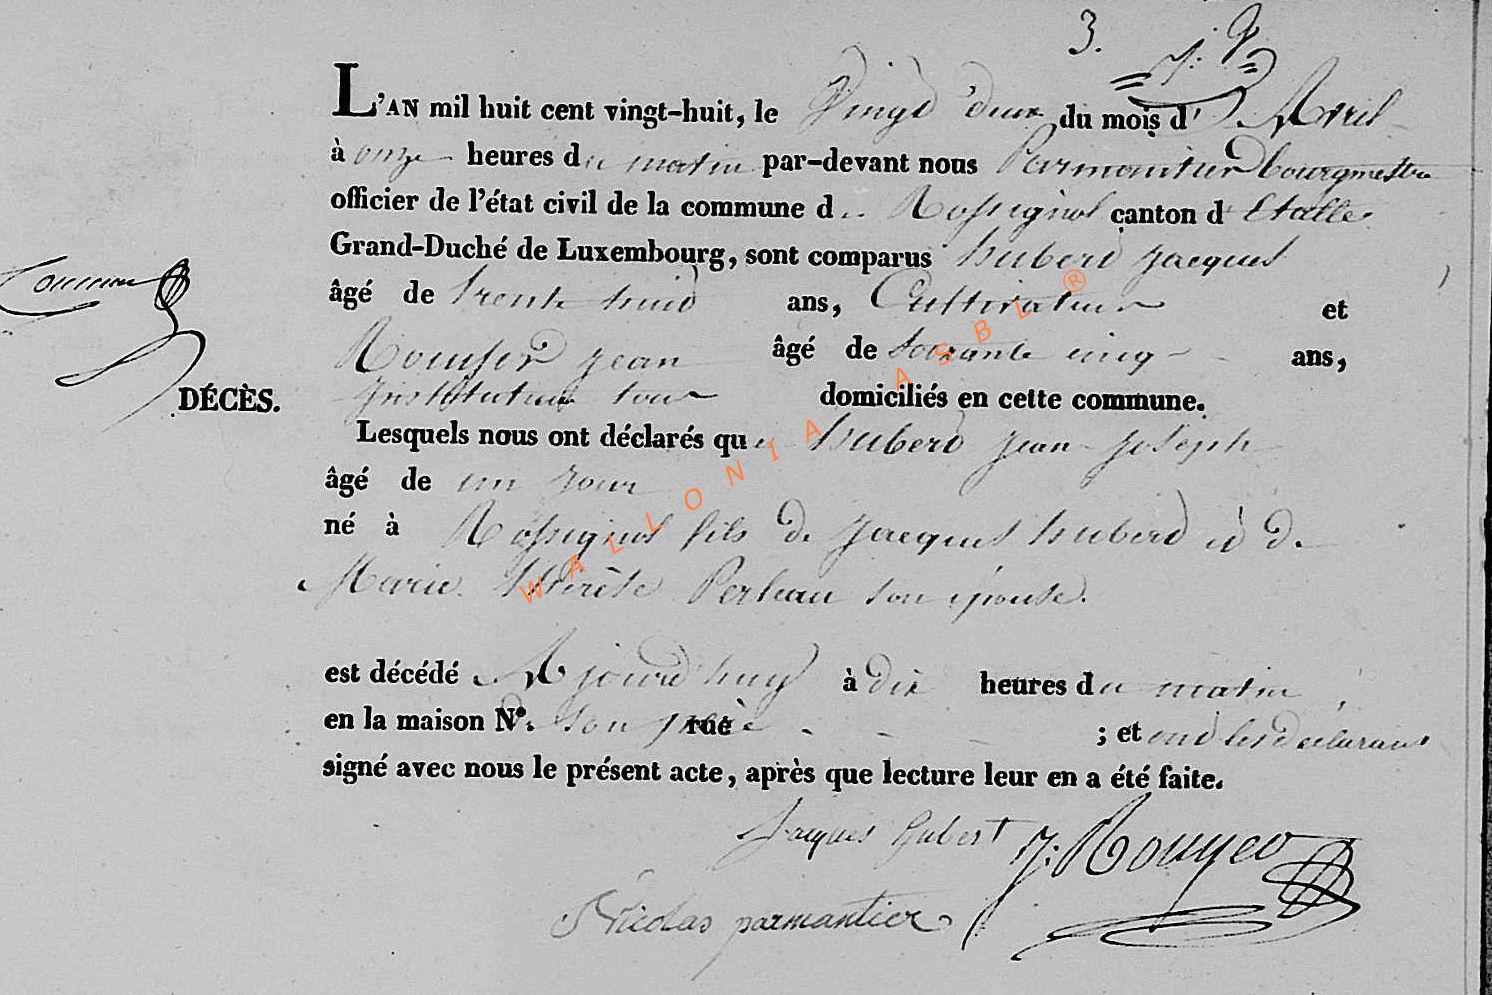 3.
L'AN mil huit cent vingt-huit, le Vingt deux du mois d' Avril
à onze heures du matin par-devant nous Parmentier bourgmestre
officier de l'état civil de la commune de Rossignol canton d'Etalle
Grand-Duché de Luxembourg, sont comparus hubert jacques
âgé de trente huit ans, Cultivateur et
jean âgé de Soixante cinq ans,
instituteur tous domiciliés en cette commune.
DÉCÈS.
Lesquels nous ont déclarés que hubert jean joseph
âgé de un jour
né à Rossignol fils de jacques hubert et de
Marie thérèse Perleau son épouse.
est décédé Ajourd'huy à dix heures du matin
en la maison Nº. son père rue ; et ont les déclarans
signé avec nous le présent acte, après que lecture leur en a été faite.
jacques hubert J: Rougeo
Nicolas parmantier
WALLONIA ASBL ®